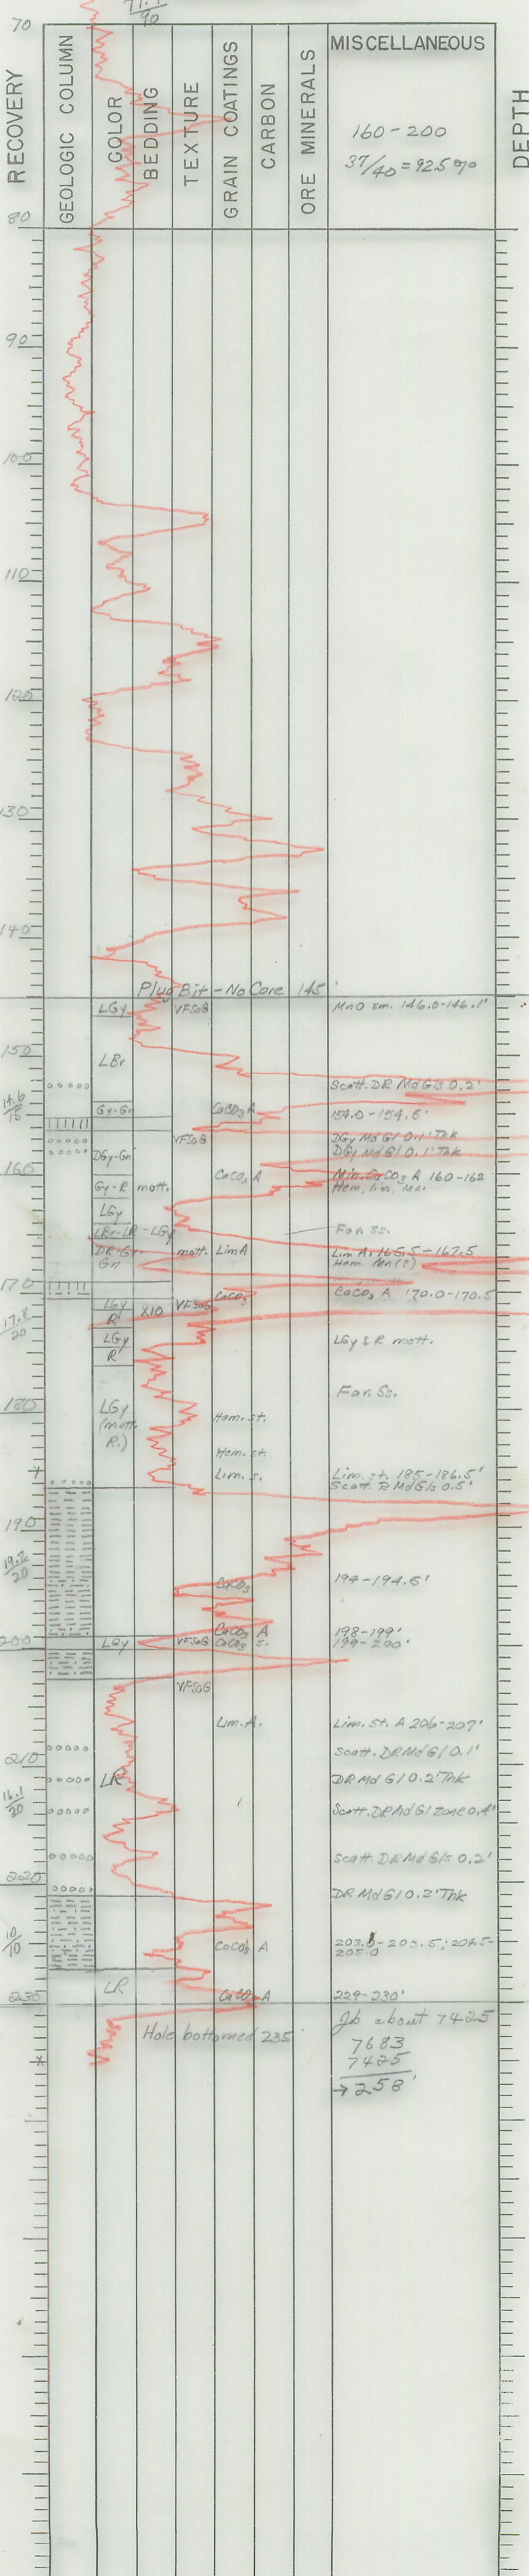 77.1
90
70
RECOVERY
GEOLOGIC COLUMN
COLOR
BEDDING
TEXTURE
GRAIN COATINGS
CARBON
ORE MINERALS
MISCELLANEOUS
DEPTH
160-200
37/40 = 92.5 %
80
90
100
110
120
130
140
Plug Bit - No Core 145'
LGy VFSaG MnO sm. 146.0-146.1'
150
LBr
Scatt. DR Md Gls 0.2'
14.6
15
Gy-Gn CaCO3 A 154.0-154.6'
VFSaG DGy Md Gl 0.1' Thk
DGy-Gn DGy Md Gl 0.1' Thk
160
CaCO3 A Min. CaCO3 A 160-162
Gy-R mott. Hem, lim, Mn.
LGy
LBr-LR-LGy Fav. ss.
DR-Gy- mott. Lim A Lim A, 165.5-167.5
Gn Hem Mn(?)
170
CaCO3 CaCO3 A 170.0-170.5
LGy X10 VFSaG
R
17.8
20
LGy LGy & R mott.
R
Fav. Ss.
180
LGy
(mott.
R.)
Hem. st.
Hem. st.
Lim. s. Lim. st. 185-186.5'
Scatt. R Md Gls 0.5'
190
19.2
20
CaCO3 194-194.6'
CaCO3 A 198-199'
200 LGy VFSaG CaCO3 s. 199-200'
VFSaG
Lim. A. Lim. st. A 206-207'
210
Scatt. DR Md Gl 0.1'
LR DR Md Gl 0.2' Thk
16.1
20
Scatt. DR Md Gl zone 0.4'
Scatt. DR Md Gls 0.2'
220
DR Md Gl 0.2' Thk
10
10
CaCO3 A 203.0-203.5; 204.5-
205.0
LR
230 CaCO3 A 229-230'
Hole bottomed 235'
Jb about 7425
7683
7425
→ 258'